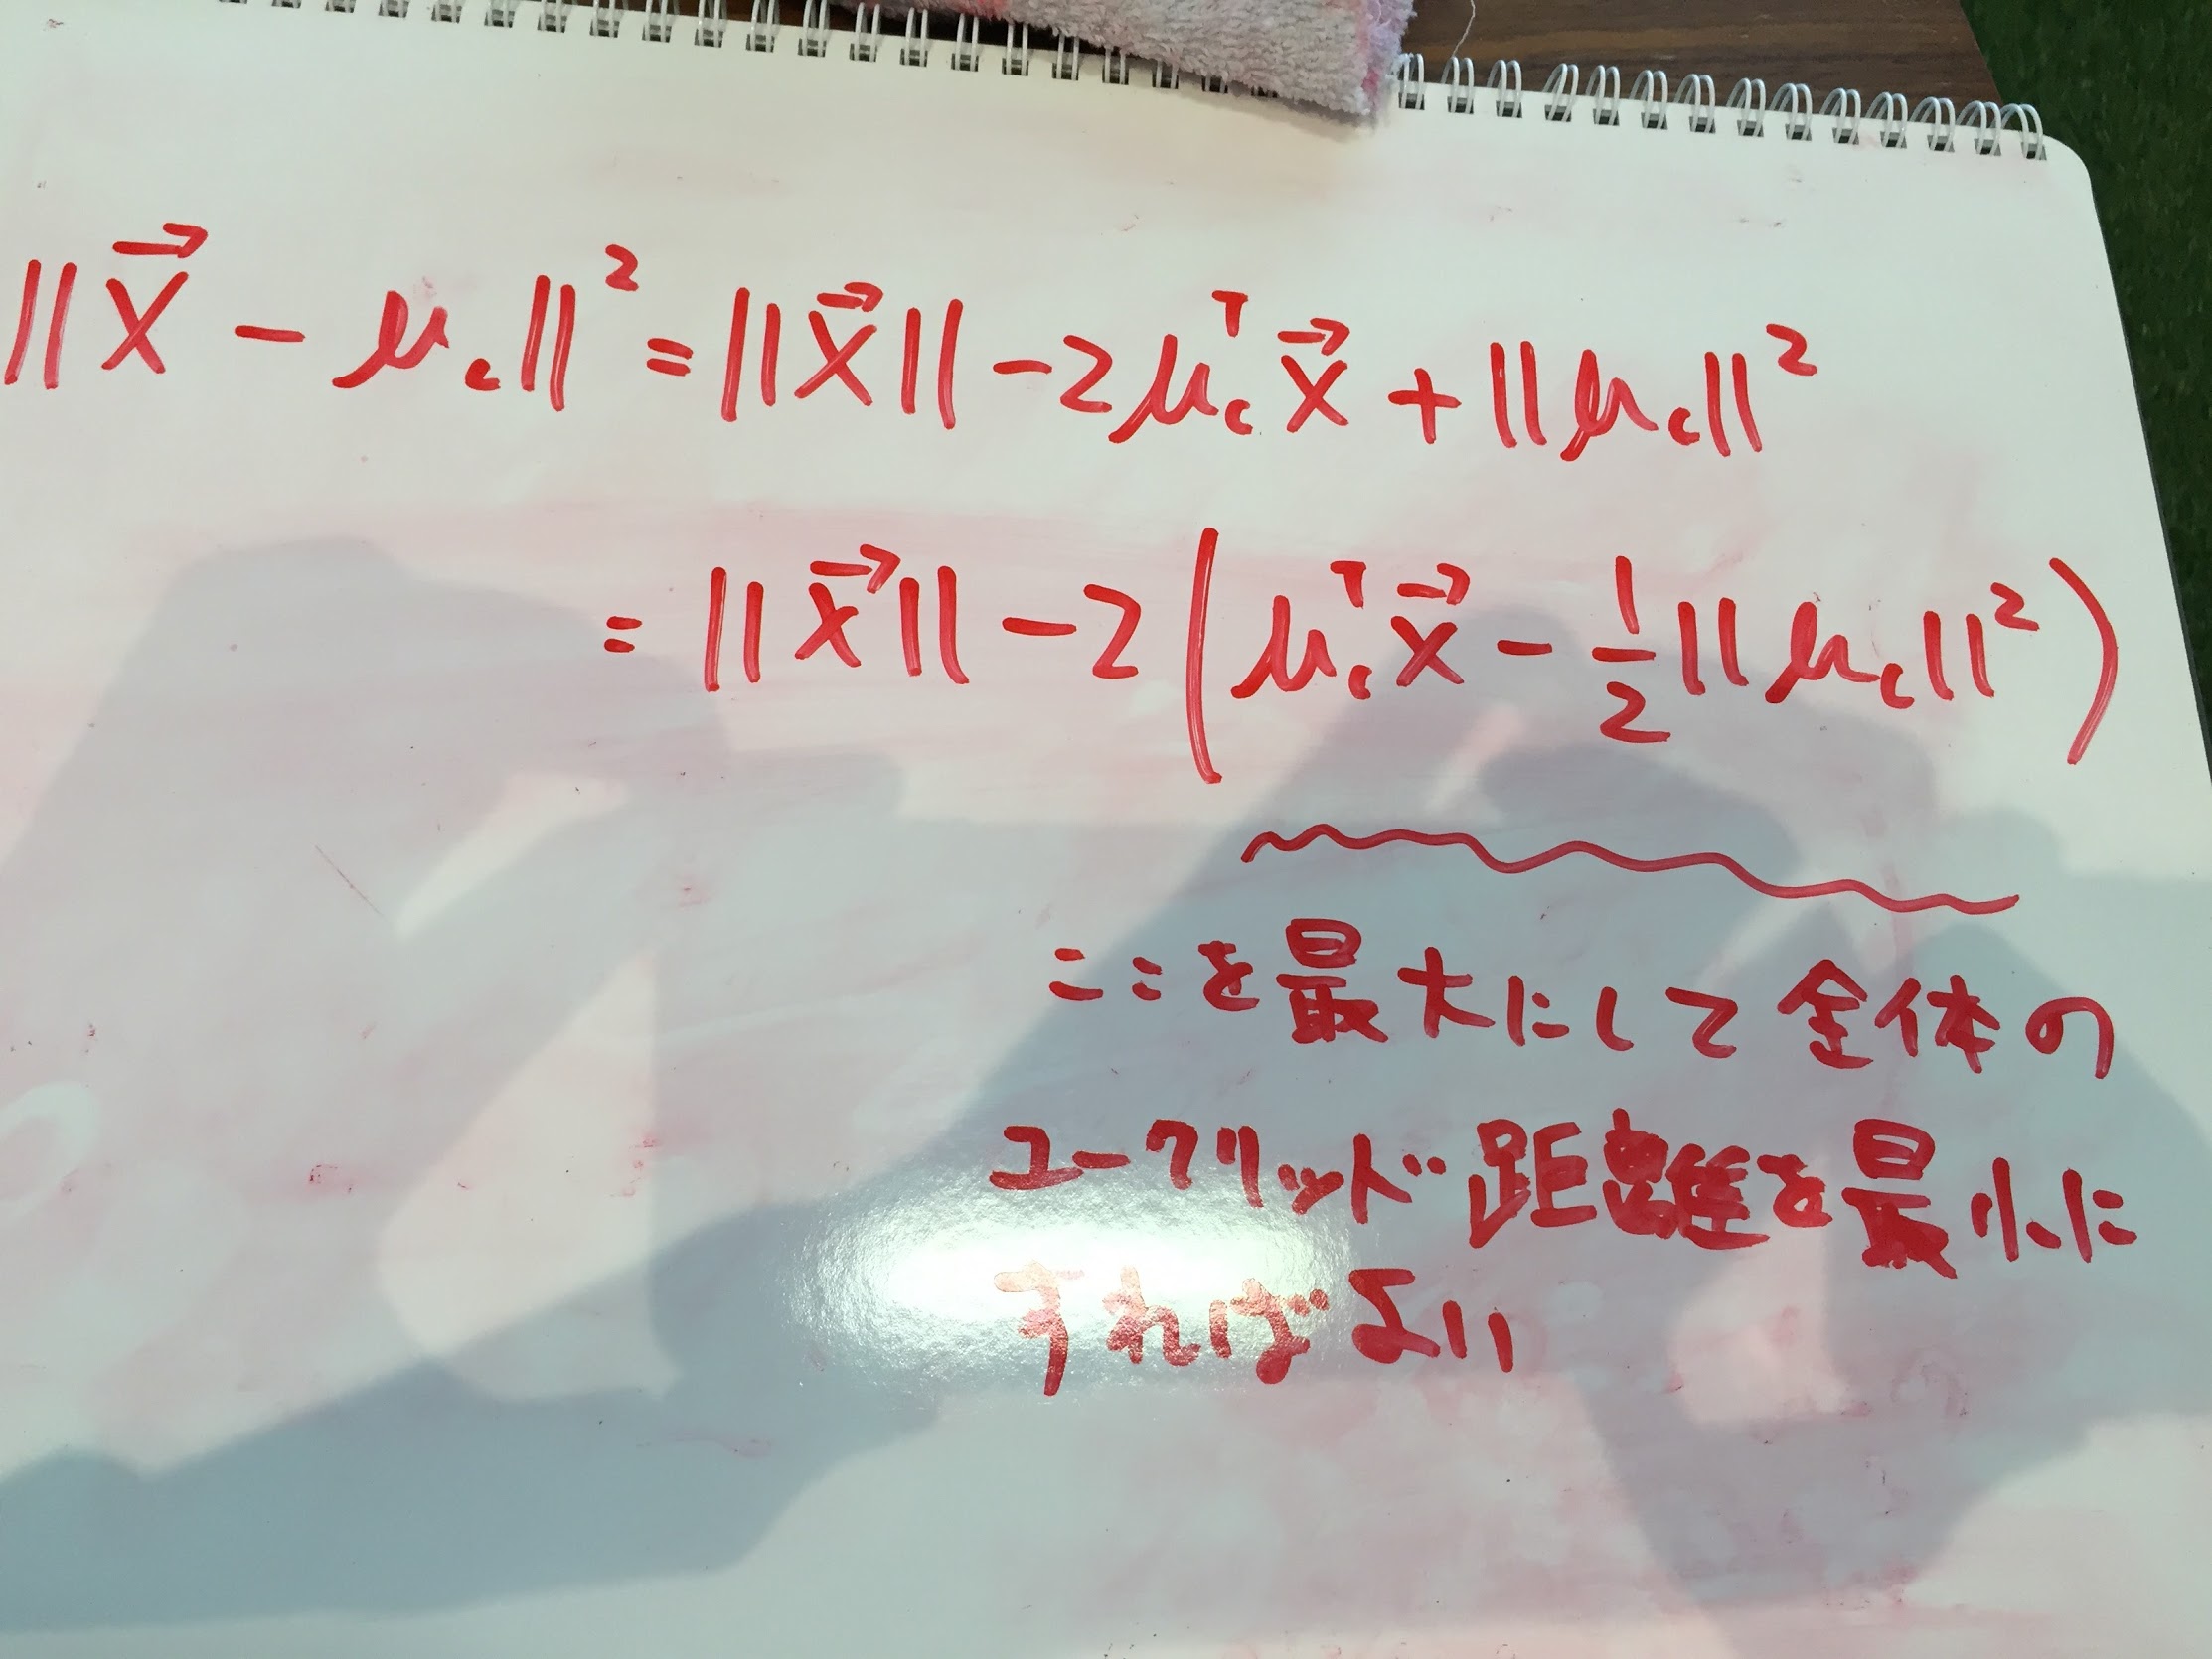 ‖x⃗ − μ_c‖² = ‖x⃗‖ − 2μ_cᵀx⃗ + ‖μ_c‖²
= ‖x⃗‖ − 2(μ_cᵀx⃗ − 1/2‖μ_c‖²)
ここを最大にして全体の
ユークリッド距離を最小に
すればよい